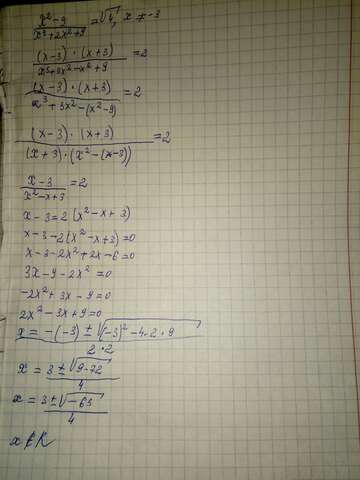 (x²-9)/(x³+2x²+9) = √4, x ≠ -3
((x-3)·(x+3))/(x³+3x²-x²+9) = 2
((x-3)·(x+3))/(x³+3x²-(x²-9)) = 2
((x-3)·(x+3))/((x+3)·(x²-(x-3))) = 2
(x-3)/(x²-x+3) = 2
x-3=2(x²-x+3)
x-3-2(x²-x+3)=0
x-3-2x²+2x-6=0
3x-9-2x²=0
-2x²+3x-9=0
2x²-3x+9=0
x = (-(-3) ± √((-3)²-4·2·9))/(2·2)
x = (3±√(9-72))/4
x = (3±√(-63))/4
x∉R